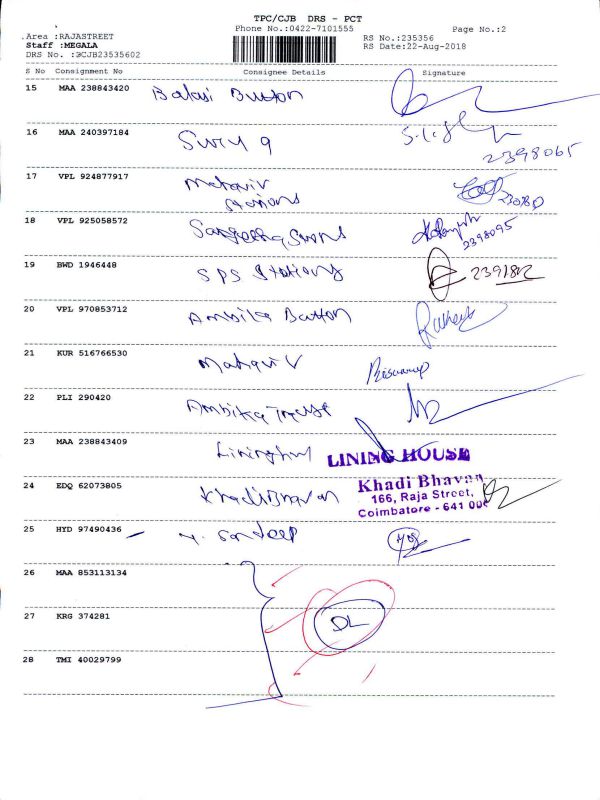 TPC/CJB DRS - PCT
Phone No.:0422-7101555
Page No.:2
Area :RAJASTREET
RS No.:235356
Staff :MEGALA
RS Date:22-Aug-2018
DRS No. :CJB23535602
S No Consignment No Consignee Details Signature
15 MAA 238843420 Balasi Button
16 MAA 240397184
2398065
17 VPL 924877917
18 VPL 925058572
2398095
19 BWD 1946448 SPS
20 VPL 970853712 Ambika Button
21 KUR 516766530
22 PLI 290420 Ambika
23 MAA 238843409
LINING HOUSE
24 EDQ 62073805 Khadi Bhavan
Khadi Bhavan
166, Raja Street,
Coimbatore - 641 001
25 HYD 97490436 Sandeep
26 MAA 853113134
27 KRG 374281 DL
28 TMI 40029799